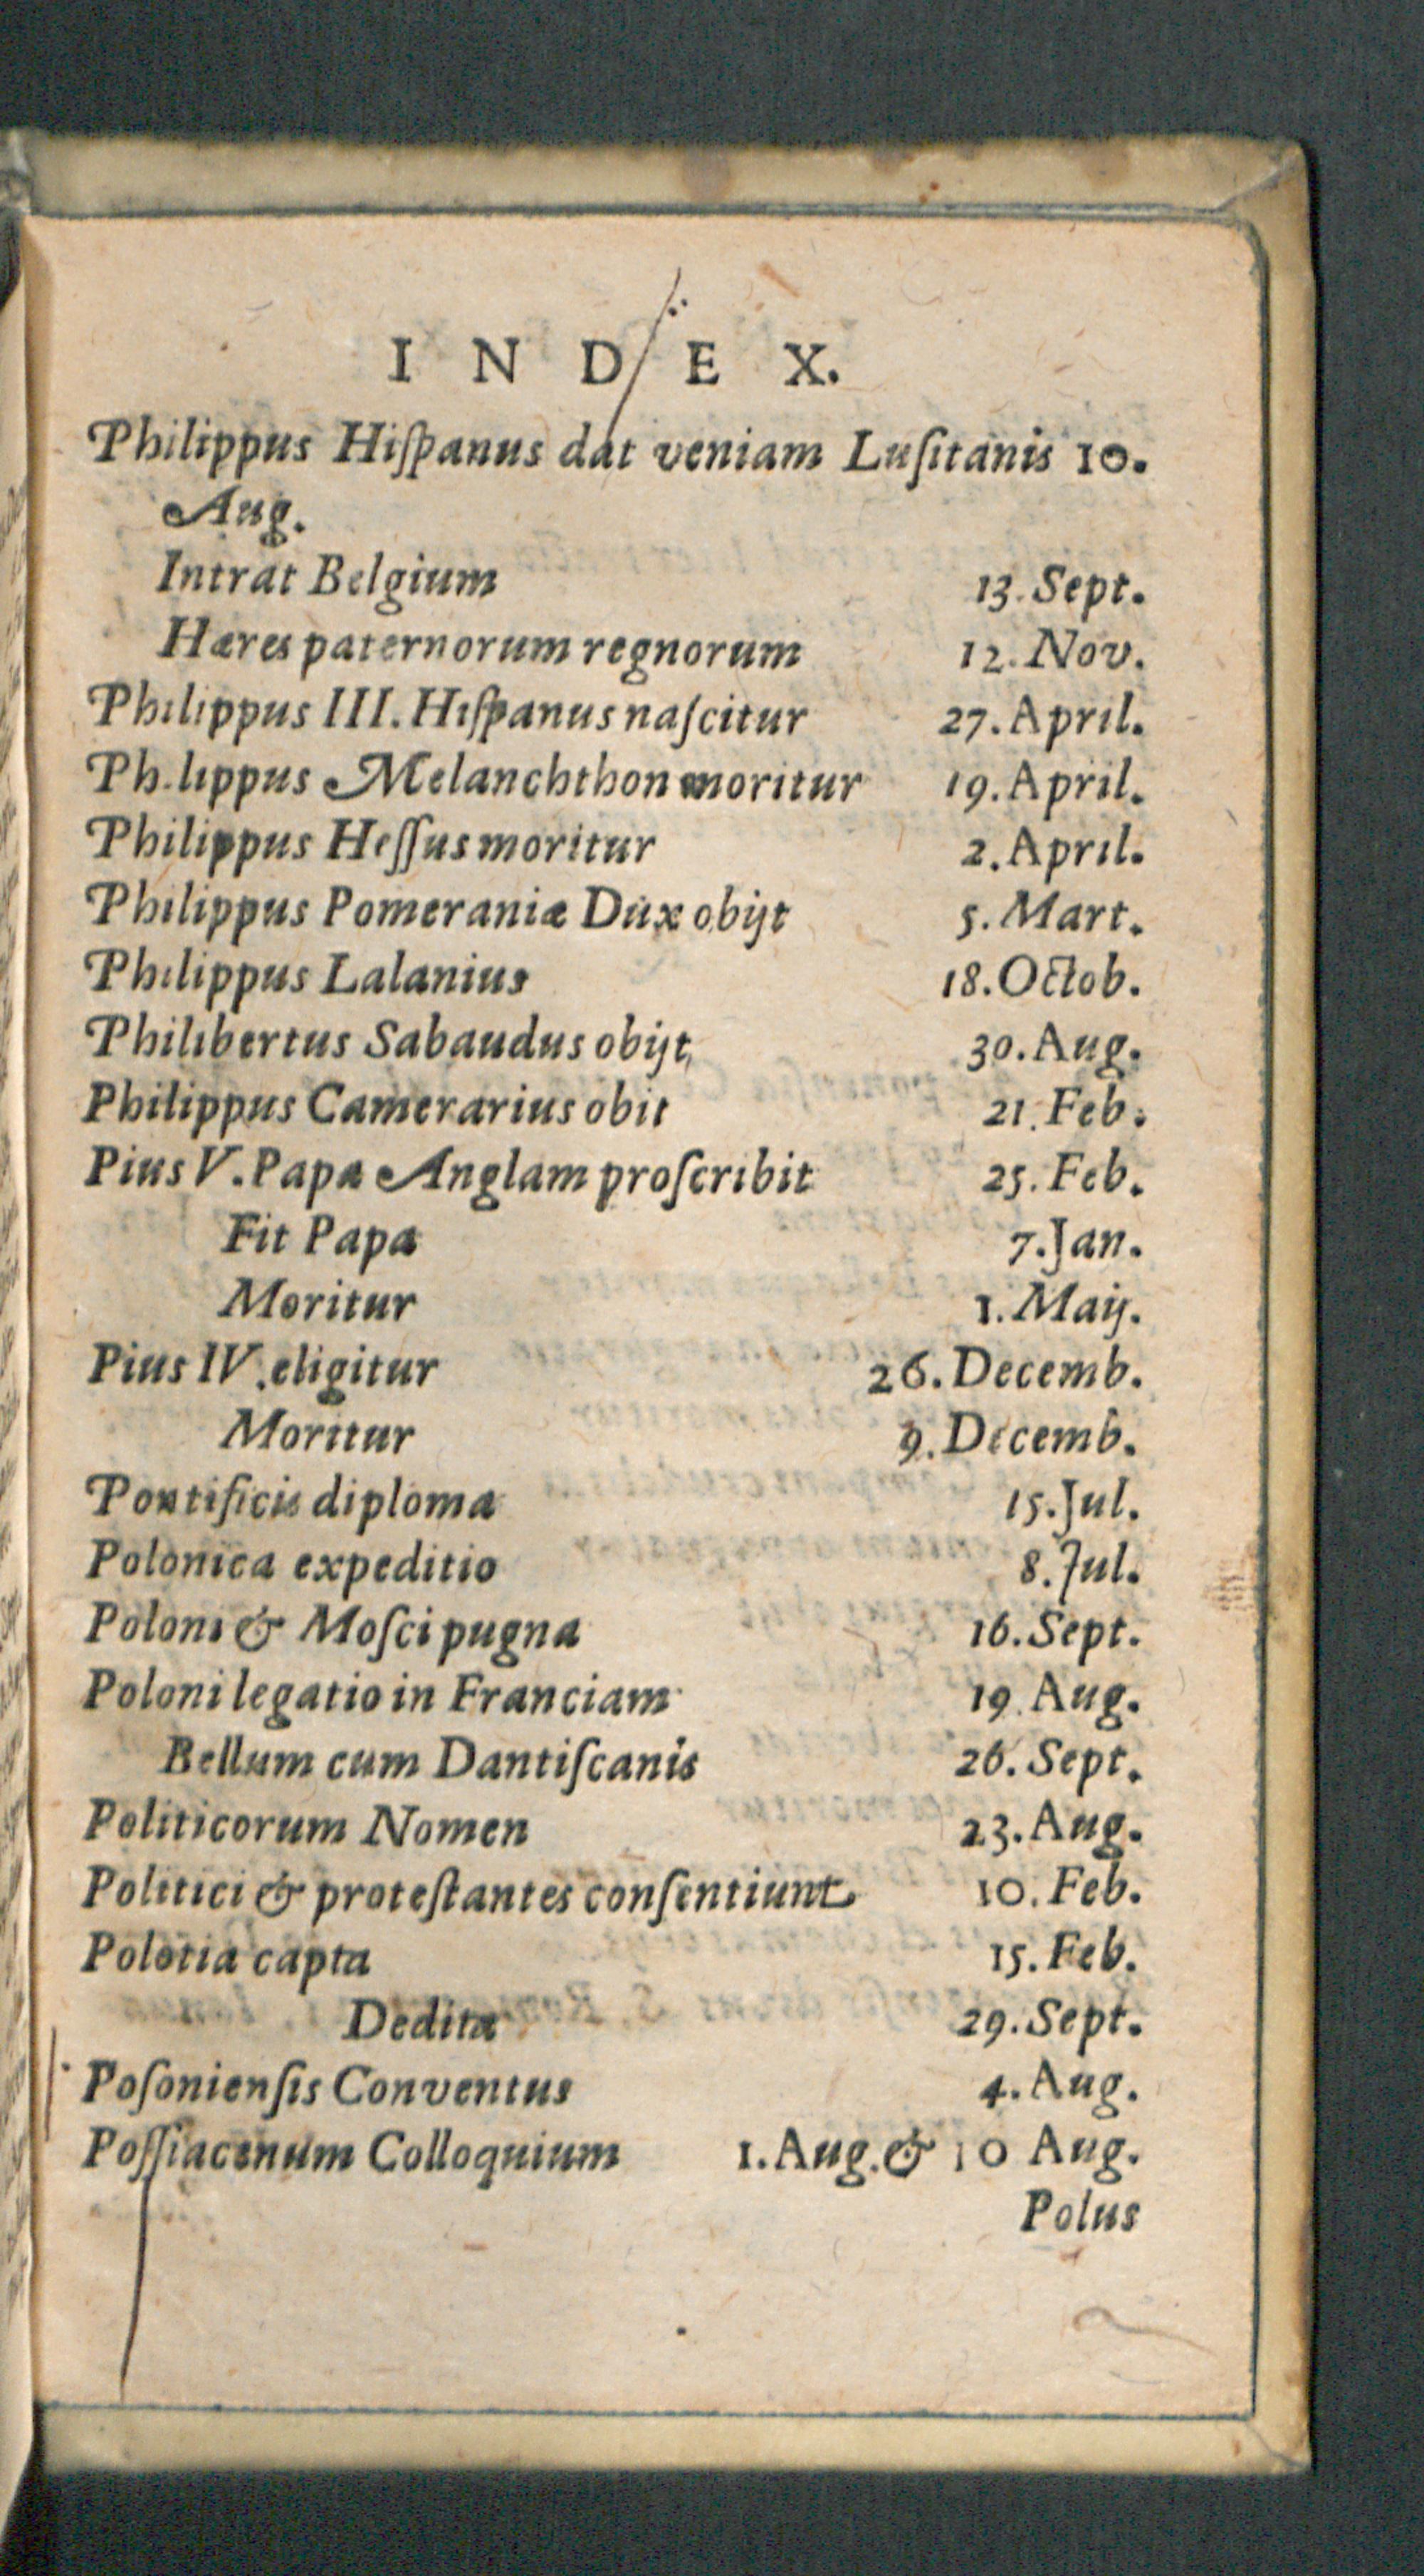 INDEX.
Philippus Hiſpanus dat veniam Luſitanis 10.
Aug.
Intrat Belgium 13. Sept.
Hæres paternorum regnorum 12. Nov.
Philippus III. Hiſpanus naſcitur 27. April.
Ph lippus Melanchthon moritur 19. April.
Philippus Heſſus moritur 2. April.
Philippus Pomeraniæ Dux obijt 5. Mart.
Philippus Lalanius 18. Octob.
Philibertus Sabaudus obijt, 30. Aug.
Philippus Camerarius obit 21. Feb.
Pius V. Papa Anglam proſcribit 25. Feb.
Fit Papa 7. Jan.
Moritur 1. Maij.
Pius IV. eligitur 26. Decemb.
Moritur 9. Decemb.
Pontificis diploma 15. Jul.
Polonica expeditio 8. Jul.
Poloni & Moſci pugna 16. Sept.
Poloni legatio in Franciam 19. Aug.
Bellum cum Dantiſcanis 26. Sept.
Politicorum Nomen 23. Aug.
Politici & proteſtantes conſentiunt 10. Feb.
Polotia capta 15. Feb.
Dedita 29. Sept.
Poſonienſis Conventus 4. Aug.
Poſſiacenum Colloquium 1. Aug. & 10 Aug.
Polus